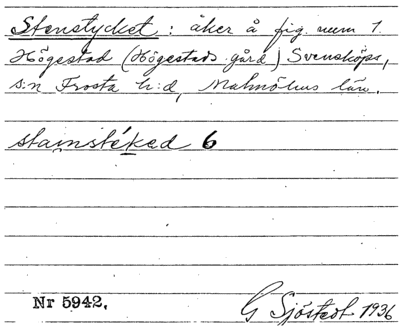 Stenstycket : åker å fig. num 1.
Högestad (Högestads gård) Svensköps,
s:n Frosta h:d, Malmöhus län.
stainsté'ked 6
Nr 5942.
G Sjöstedt 1936